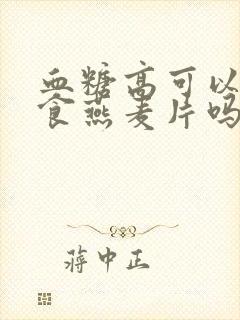 血糖高可以
食燕麦片吗
蒋中正